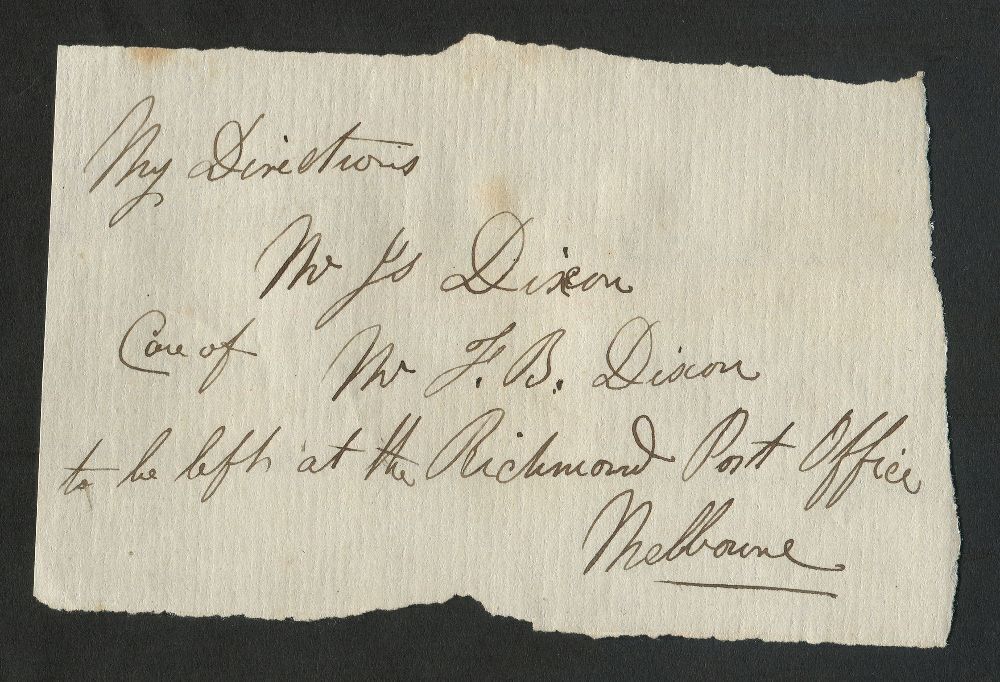 My Directions
Mr Js Dixon
Care of Mr F. B. Dixon
to be left at the Richmond Post Office
Melbourne